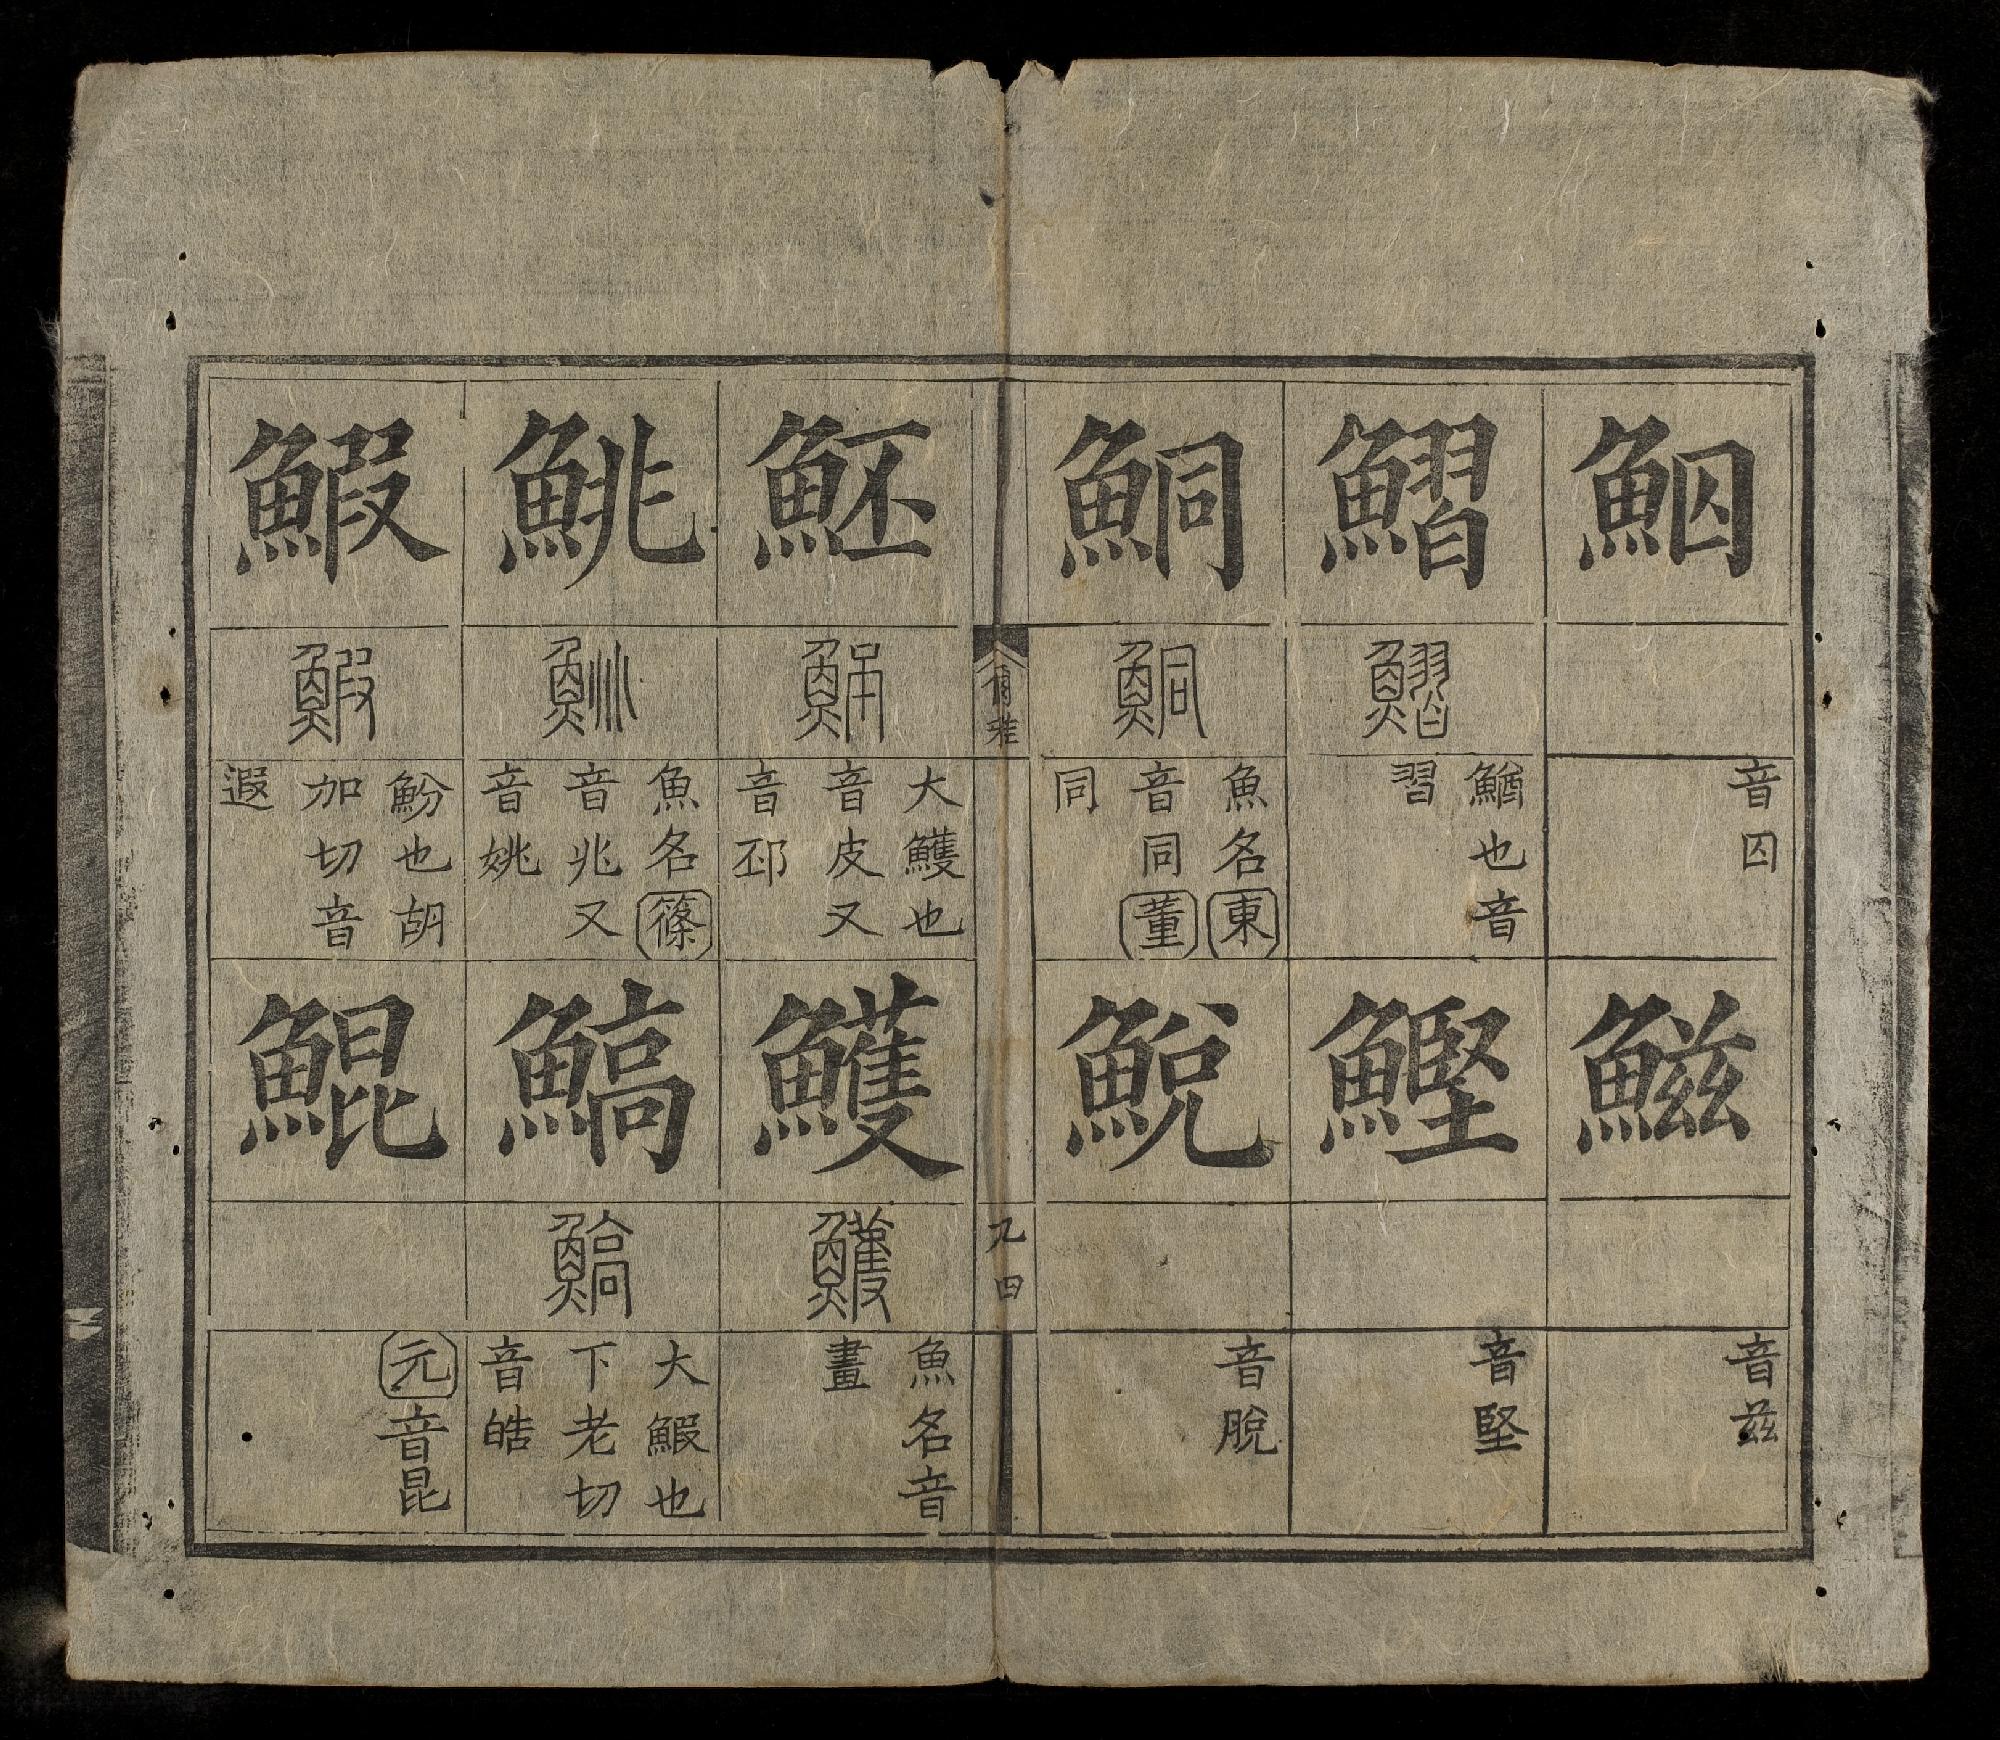 鮂
音囚
鰦
音茲
鰼
鰼
鰌也音
習
鰹
音堅
鮦
鮦
魚名東
音同董
同
鮵
音脫
爾雅
九四
魾
魾
大鱯也
音皮又
音邳
鱯
鱯
魚名音
畫
鮡
鮡
魚名篠
音兆又
音姚
鰝
鰝
大鰕也
下老切
音皓
鰕
鰕
魵也胡
加切音
遐
鯤
元音昆